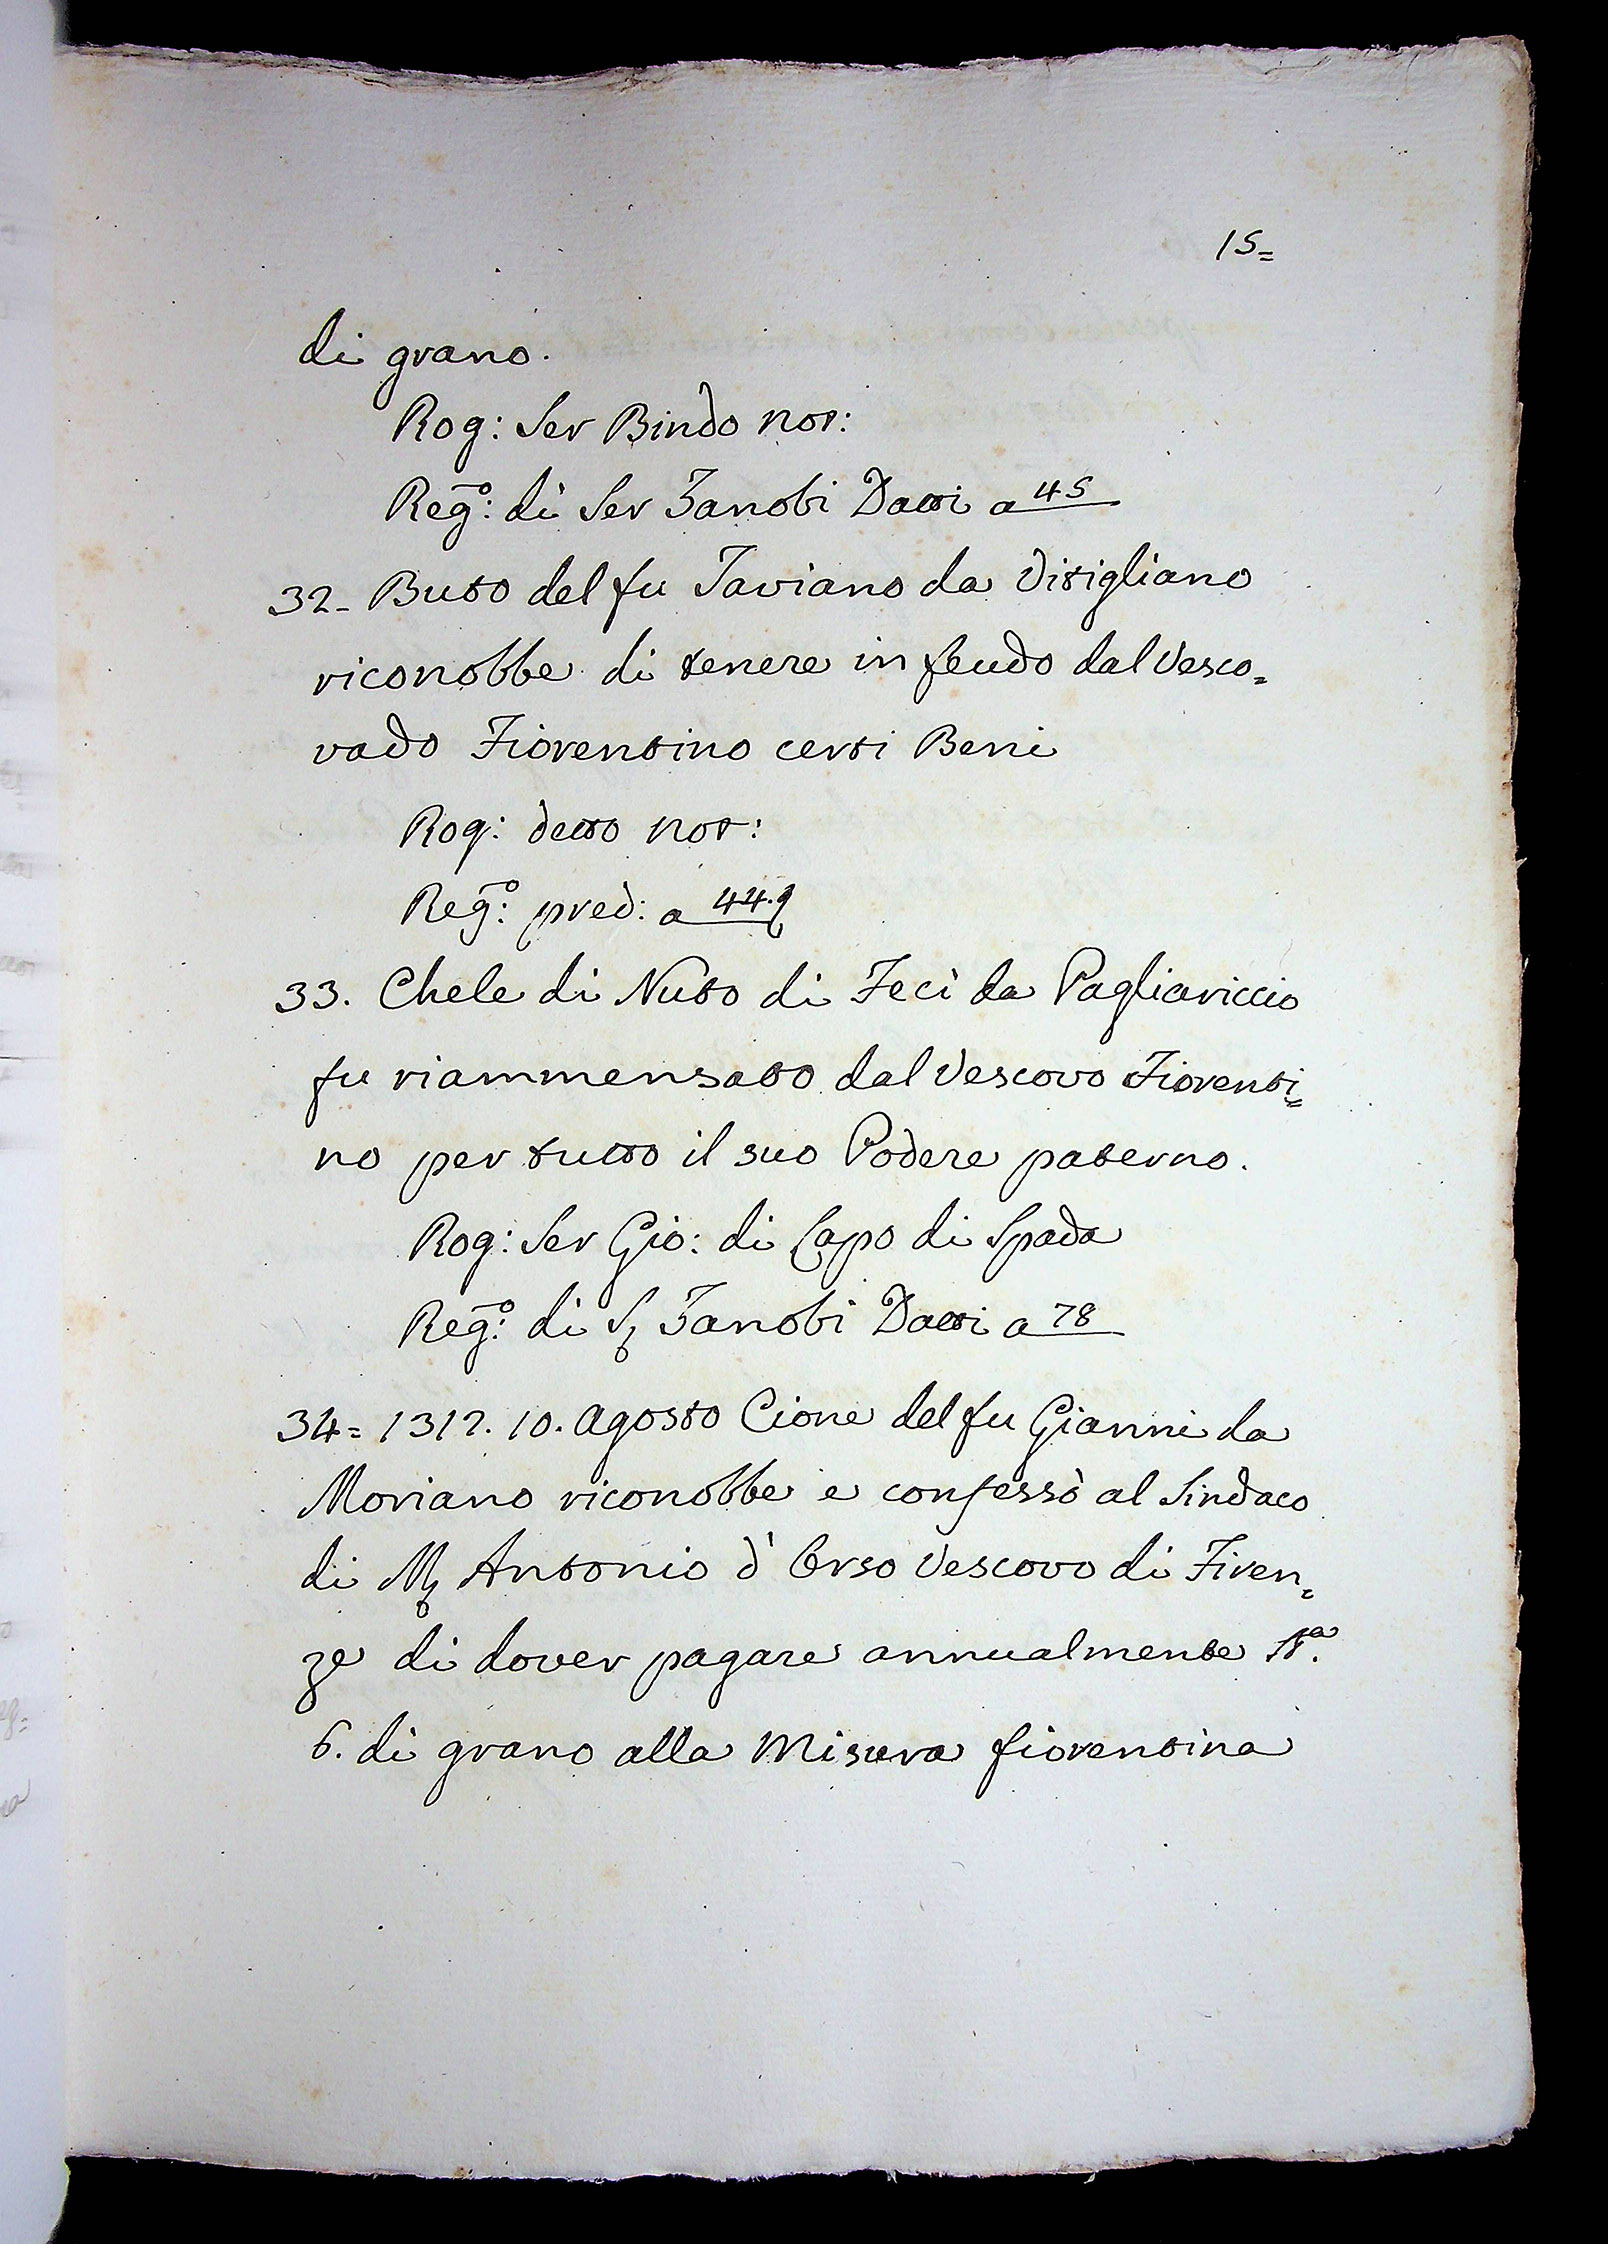 15=
di grano.
Rog: Ser Bindo not:
Reg.º: di Ser Zanobi Datti a 45
32- Buto del fu Taviano da Vitigliano
riconobbe di tenere in feudo dal Vesco=
vado Fiorentino certi Beni
Rog: detto not:
Reg.º: pred: a 44.
33. Chele di Nuto di Feci da Pagliariccio
fu riammensato dal Vescovo Fiorenti=
no per tutto il suo Podere paterno.
Rog: Ser Gio: di Lapo di Spada
Reg.º: di S. Zanobi Datti a 78
34= 1312. 10. Agosto Cione del fu Gianni da
Moriano riconobbe e confessò al Sindaco
di M. Antonio d'Orso Vescovo di Firen=
ze di dover pagare annualmente
6. di grano alla Misura fiorentina